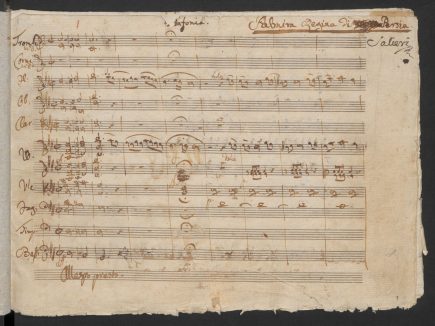 Sinfonia.
Palmira Regina di Persia
Salieri
Trombe
Corni
Fl.
Ob.
Clar.
V.
Vle
Fag.
Timp.
Bassi
Allegro presto.